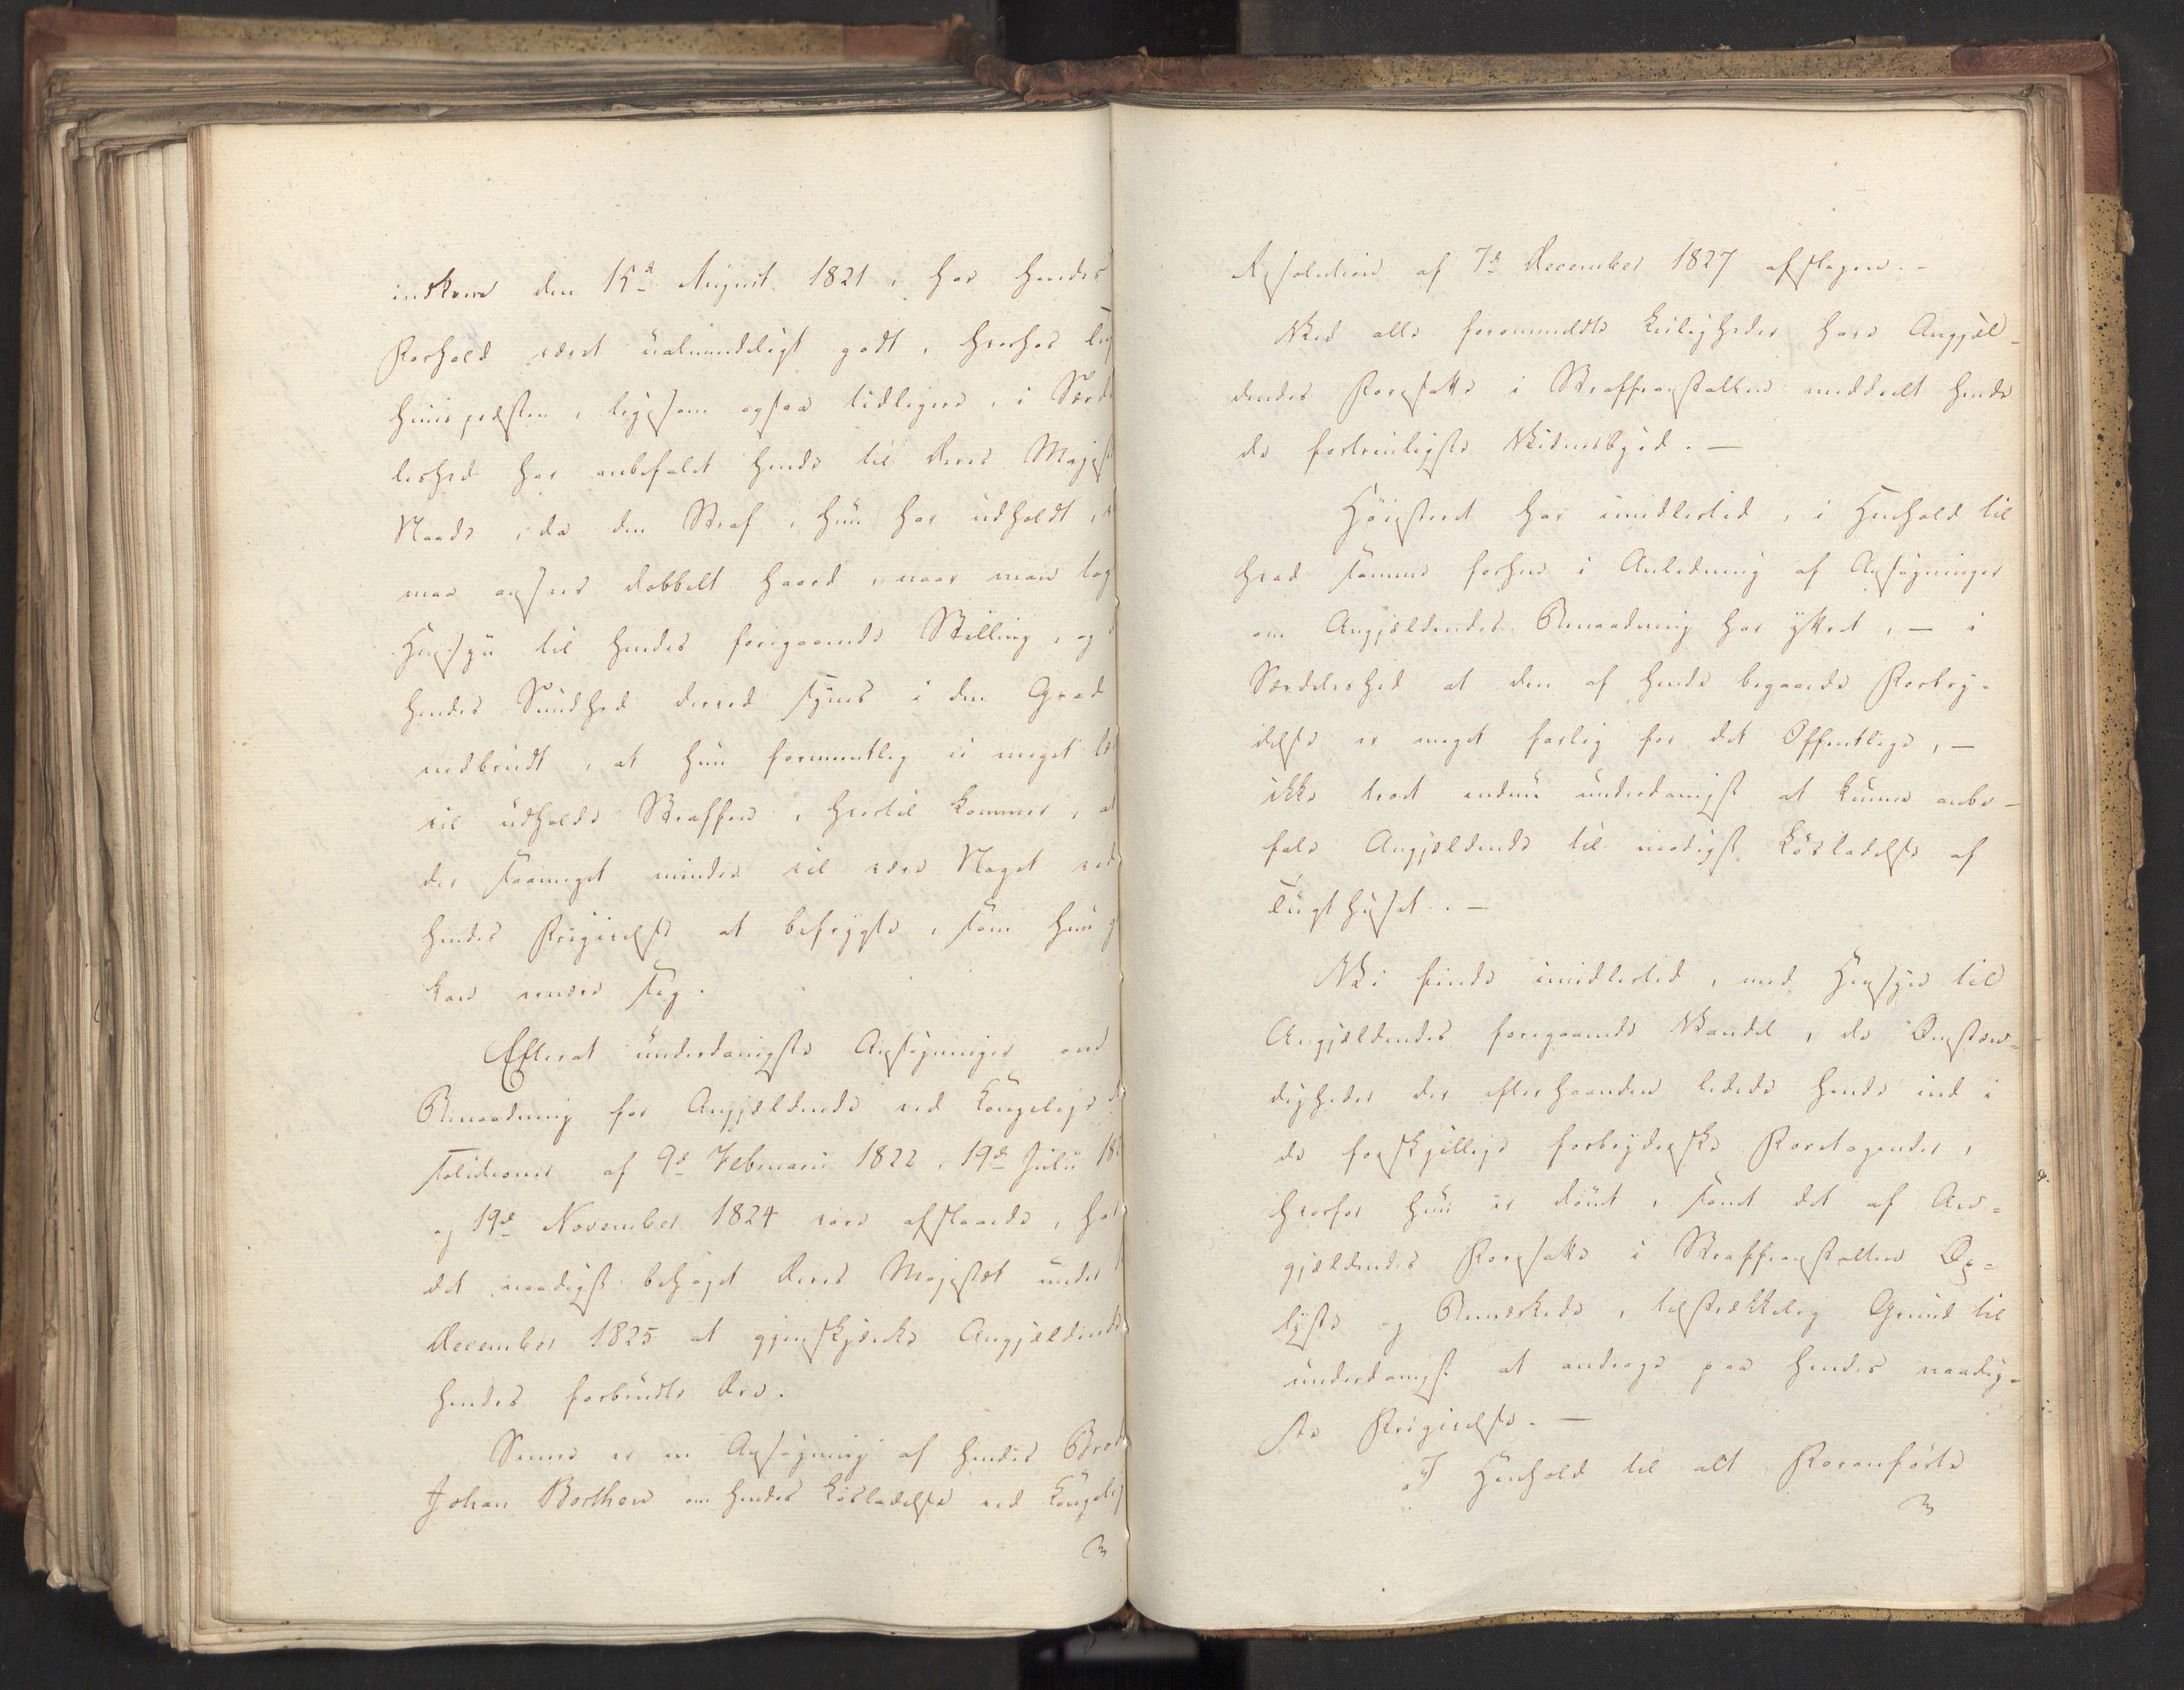 indkom den 15d August 1821, har hendes
Forhold været ualmindeligt godt, hvorhos
huuspræsten, ligesom ogsaa tidligere, i Særde
leshed har anbefalet hende til Deres Majest
Naade, da den Straf, hun har udholdt,
maa ansees dobbelt haard, naar man tag
Hensyn til hendes foregaaende Stilling, og
hendes Sundhed derved synes i den Grad
nedbrudt, at hun formentlig ei meget
vil udholde Straffen, hvortil kommer, at
der saameget mindre vil være Noget ved
hendes Frigivelse at befrygte, som hun
kan ernære sig.
Efterat underdanigste Ansøgninger om
Benaadning for Angjældende ved Kongelige
solutioner af 9d Februarii 1822, 19d Julii 18
og 19d November 1824 vare afslaaede, har
det naadigst behaget Deres Majestæt under
December 1825 at gjenskjænke Angjældende
hendes forbrudte Ære.
Senere er en Ansøgning af hendes Brod
Johan Borthen om hendes Løsladelse ved Kongelig
Resolution af 7d December 1827 afslagen. -
Ved alle forommeldte Leiligheder have Angjæl-
dendes Foresatte i Straffeanstalten meddeelt hende
de fortrinligste Vidnesbyrd. —
Höiesteret har imidlertid, i Henhold til
hvad samme forhen i Anledning af Ansøgninger
om Angjældendes Benaadning har yttret, — i
Særdeleshed at den af hende begaaede Forbry-
delse er meget farlig for det Offentlige, —
ikke troet endnu underdanigst at kunne anbe-
fale Angjældende til naadigst Løsladelse af
Tugthuset. —
Vi finde imidlertid, med Hensyn til
Angjældendes foregaaende Vandel, de Omstæn-
digheder der efterhaanden ledede hende ind i
de forskjellige forbryderske Foretagender,
hvorfor hun er dömt, samt det af An-
gjældendes Foresatte i Straffeanstalten Op-
lyste og Bemærkede, tilstrækkelig Grund til
underdanigst at andrage paa hendes naadig-
ste Frigivelse. —
I Henhold til alt Foranførte